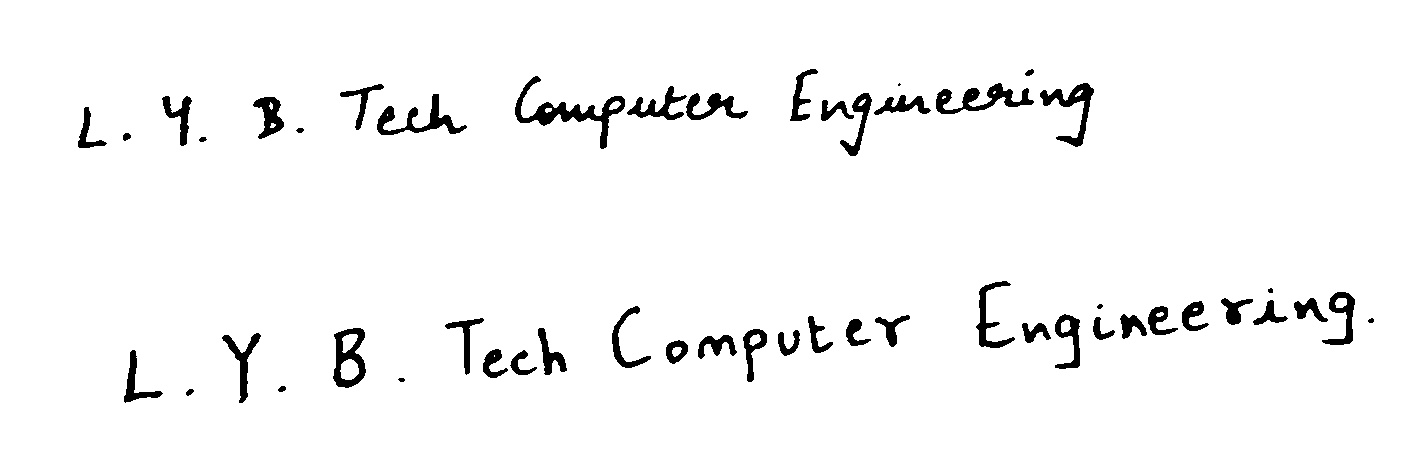 L. Y. B. Tech Computer Engineering
L. Y. B. Tech Computer Engineering.